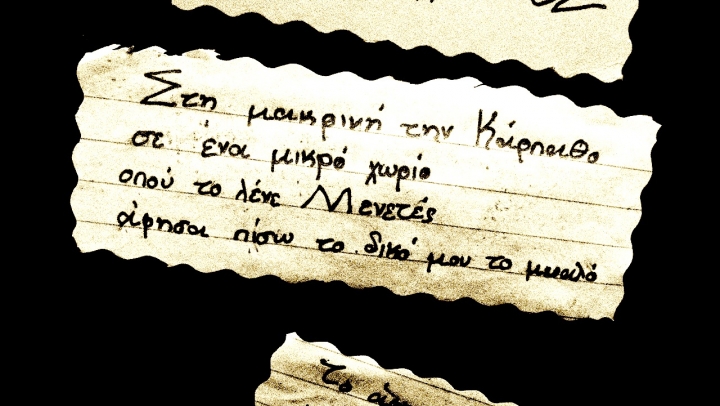 Στη μακρινή την Κάρπαθο
σε ένα μικρό χωριό
οπού το λένε Μενετές
άφησα πίσω το δικό μου το μυαλό
το